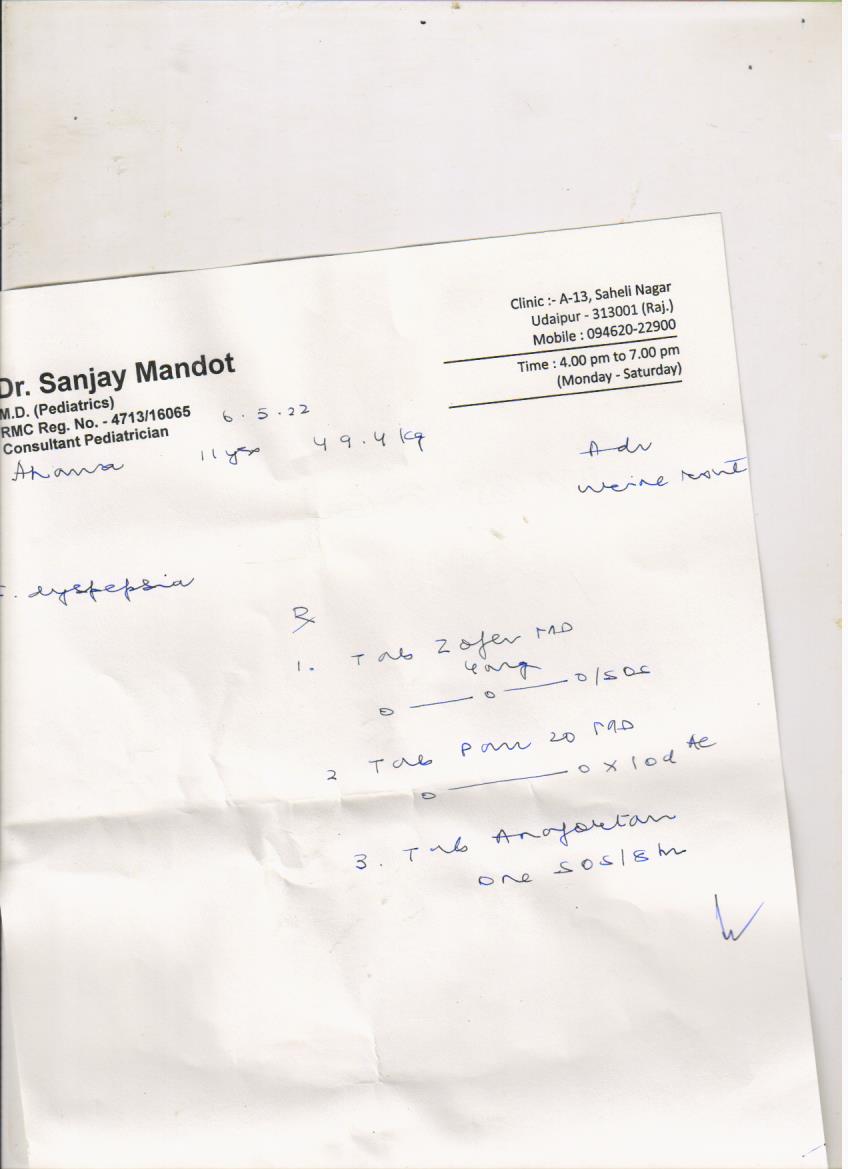 Clinic :- A-13, Saheli Nagar
Udaipur - 313001 (Raj.)
Mobile : 094620-22900
Time : 4.00 pm to 7.00 pm
(Monday - Saturday)
Dr. Sanjay Mandot
M.D. (Pediatrics)
RMC Reg. No. - 4713/16065
Consultant Pediatrician
6.5.22
11 yrs 49.4 kg
Adv
dyspepsia
Rx
1. Tab Zofer MD
4mg
0 —— 0 —— 0/SOS
2 Tab Pan 20 MD
0 ——— 0 x 10d AC
3. Tab Anafortan
one SOS/8 hr